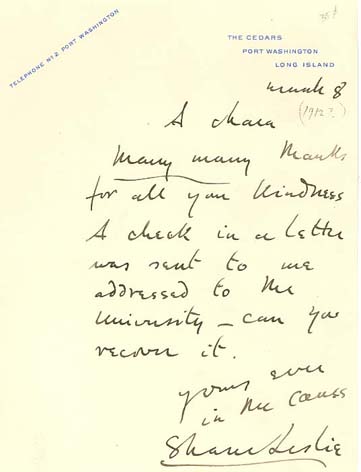 TELEPHONE Nº 2 PORT WASHINGTON
THE CEDARS
PORT WASHINGTON
LONG ISLAND
March 8
(1912?)
A Chara
Many many thanks
for all your kindness
A check in a letter
was sent to me
addressed to the
University — can you
recover it.
yours ever
in the cause
Shane Leslie